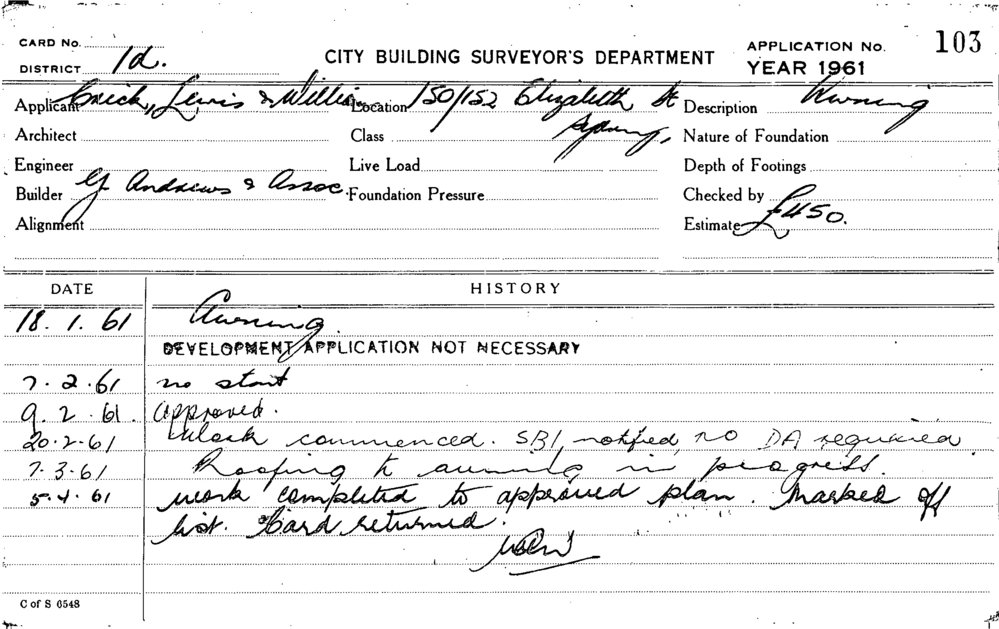 CARD No.
DISTRICT 1d.
CITY BUILDING SURVEYOR'S DEPARTMENT
APPLICATION No. 103
YEAR 1961
Applicant Crick, Lewis & Williams Location 150/152 Elizabeth St Sydney, Description Awning
Architect Class Nature of Foundation
Engineer Live Load Depth of Footings
Builder G Andrews & Assoc. Foundation Pressure Checked by
Alignment Estimate £450.
DATE HISTORY
18.1.61 Awning.
DEVELOPMENT APPLICATION NOT NECESSARY
7.2.61 no start
9.2.61. Approved.
20.2.61 Work commenced. SBI notified no DA required
7.3.61 Roofing to awning in progress.
5.4.61 work completed to approved plan. Marked off
list. Card returned.
C of S 0548